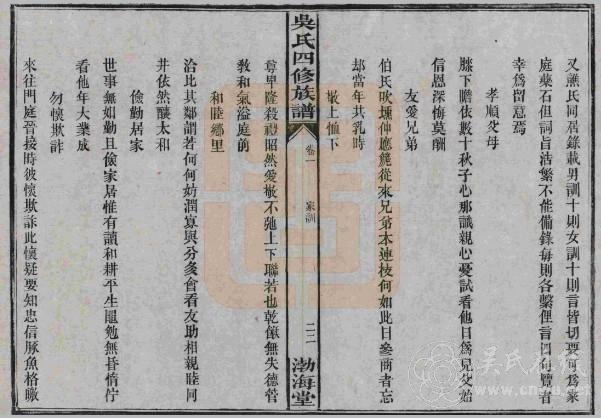 又譙氏同居錄載男訓十則女訓十則言皆切要可為家
庭藥石但詞旨浩繁不能備錄每則各繫俚言四
幸為留意焉
孝順父母
膝下瞻依數十秋子心那識親心憂試看他日為兒父始
信恩深悔莫酬
友愛兄弟
伯氏吹壎仲應篪從來兄弟本連枝何如此日參商者忘
却當年共乳時
敬上恤下
吳氏四修族譜
卷一
家訓
二二
渤海堂
尊卑隆殺禮昭然愛敬不弛上下聯若也乾餱無失德管
教和氣溢庭前
和睦鄉里
洽比其鄰謂若何何妨潤寡與分多會看友助相親睦同
井依然釀太和
儉勤居家
世事無如勤且儉家居惟有讀和耕平生黽勉無昏惰佇
看他年大業成
勿懷欺詐
來往門庭晉接時彼懷欺訴此懷疑要知忠信豚魚格瞰
吳氏在线